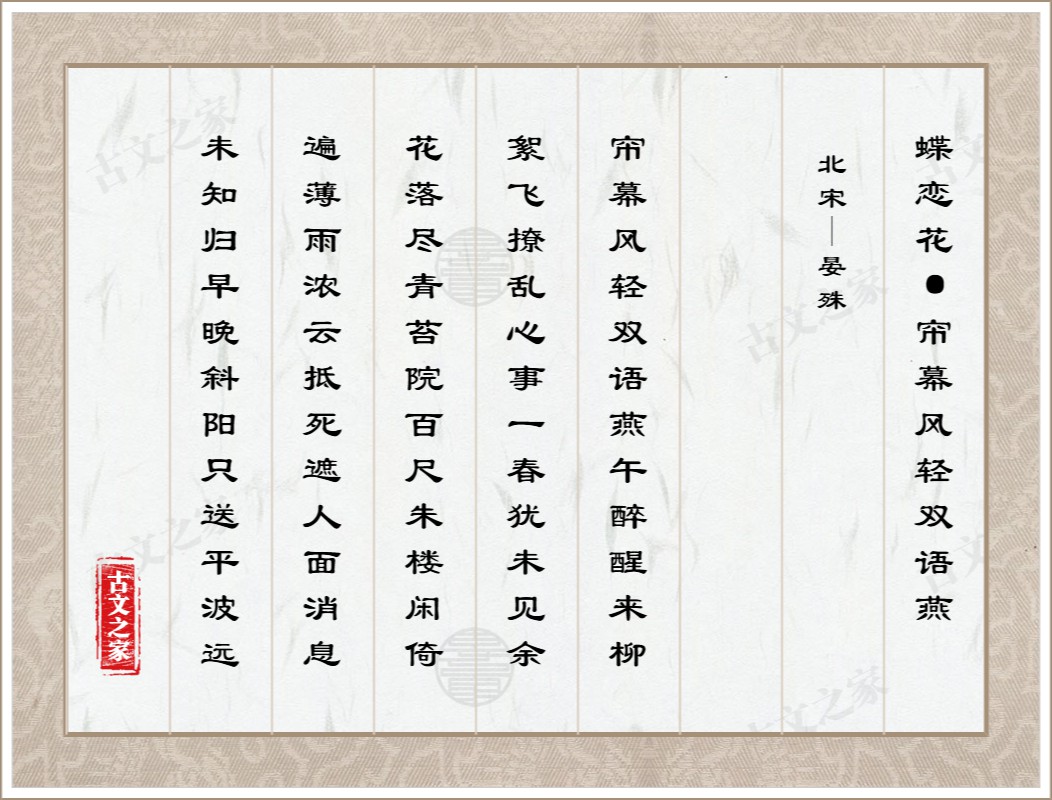 蝶恋花●帘幕风轻双语燕
北宋—晏殊
帘幕风轻双语燕午醉醒来柳
絮飞撩乱心事一春犹未见余
花落尽青苔院百尺朱楼闲倚
遍薄雨浓云抵死遮人面消息
未知归早晚斜阳只送平波远
古文之家
古文之家
古文之家
古文之家
古文之家